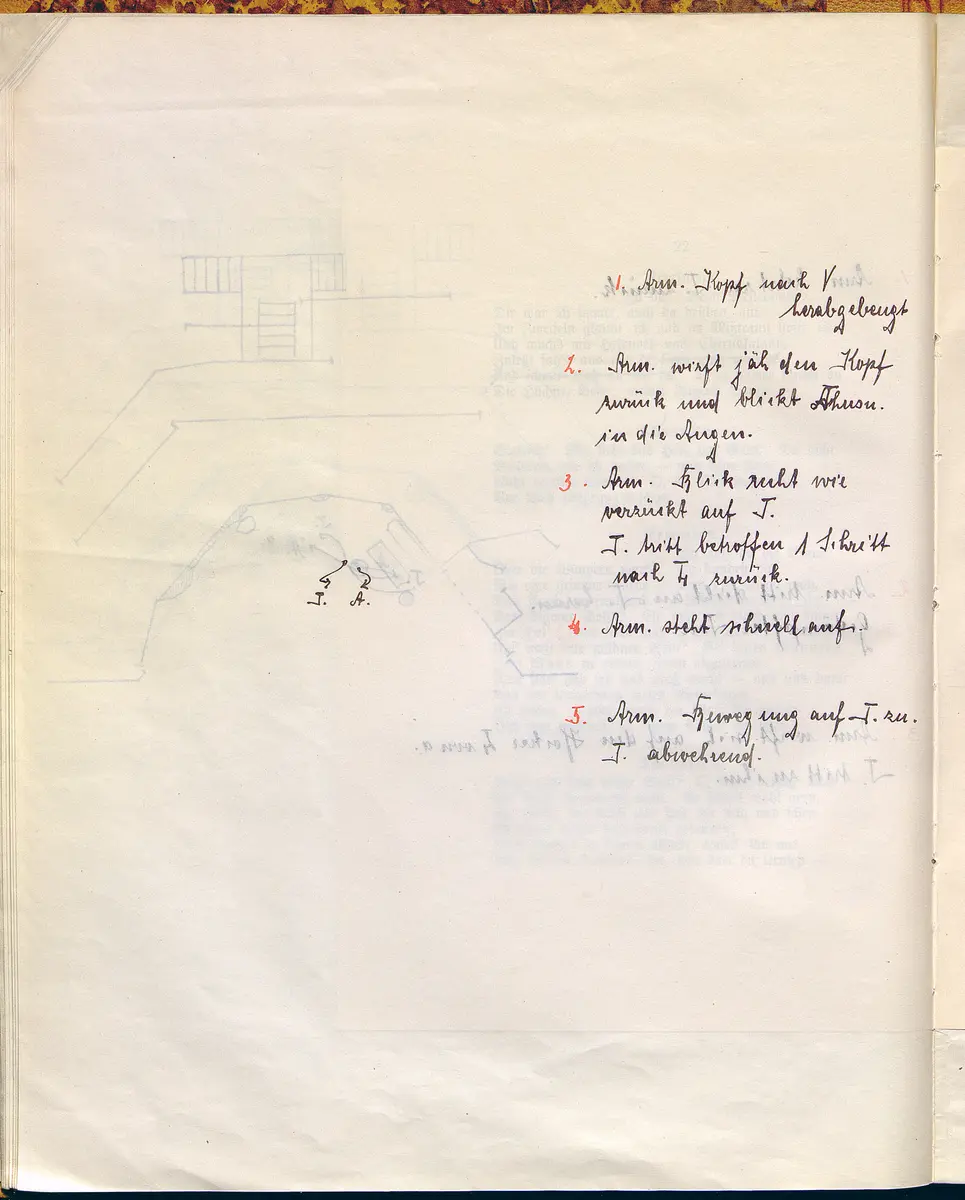 1. Arm. Kopf nach V
herabgebeugt
2. Arm. wirft jäh den Kopf
zurück und blickt Thusn.
in die Augen.
3. Arm. Blick ruht wie
verzückt auf T.
T. tritt betroffen 1 Schritt
nach zurück.
4. Arm. steht schnell auf.
5. Arm. Bewegung auf T. zu.
T. abwehrend.
T. A.